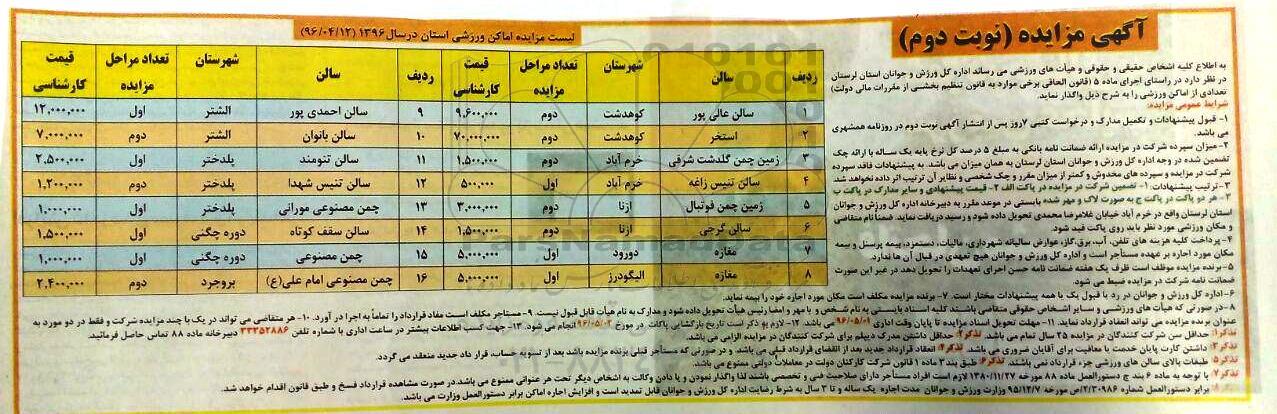 آگهی مزایده (نوبت دوم)
به اطلاع کلیه اشخاص حقیقی و حقوقی و هیأت های ورزشی می رساند اداره کل ورزش و جوانان استان لرستان
در نظر دارد در راستای اجرای ماده ۵ (قانون الحاقی برخی موارد به قانون تنظیم بخشی از مقررات مالی دولت)
تعدادی از اماکن ورزشی را به شرح ذیل واگذار نماید.
شرایط عمومی مزایده:
۱- قبول پیشنهادات و تکمیل مدارک و درخواست کتبی ۷روز پس از انتشار آگهی نوبت دوم در روزنامه همشهری
می باشد.
۲- میزان سپرده شرکت در مزایده ارائه ضمانت نامه بانکی به مبلغ ۵ درصد کل نرخ پایه یک ساله با ارائه چک
تضمین شده در وجه اداره کل ورزش و جوانان استان لرستان به همان میزان می باشد. به پیشنهادات فاقد سپرده
شرکت در مزایده و سپرده های مخدوش و کمتر از میزان مقرر و چک شخصی و نظایر آن ترتیب اثر داده نخواهد شد.
۳- ترتیب پیشنهادات: ۱- تضمین شرکت در مزایده در پاکت الف ۲- قیمت پیشنهادی و سایر مدارک در پاکت ب
۳- هر دو پاکت در پاکت ج به صورت لاک و مهر شده بایستی در موعد مقرر به دبیرخانه اداره کل ورزش و جوانان
استان لرستان واقع در خرم آباد خیابان غلامرضا محمدی تحویل داده شود و رسید دریافت نماید. ضمناً نام متقاضی
و مکان ورزشی مورد نظر باید روی پاکت قید شود.
۴- پرداخت کلیه هزینه های تلفن، آب، برق، گاز، عوارض سالیانه شهرداری، مالیات، دستمزد، بیمه پرسنل و بیمه
مکان مورد اجاره بر عهده مستأجر است و اداره کل ورزش و جوانان هیچ تعهدی در قبال آن ها ندارد.
۵- برنده مزایده موظف است ظرف یک هفته ضمانت نامه حسن اجرای تعهدات را تحویل دهد در غیر این صورت
ضمانت نامه شرکت در مزایده ضبط می شود.
۶- اداره کل ورزش و جوانان در رد یا قبول یک یا همه پیشنهادات مختار است. ۷- برنده مزایده مکلف است مکان مورد اجاره خود را بیمه نماید.
۸- در صورتی که هیأت های ورزشی و سایر اشخاص حقوقی متقاضی باشند کلیه اسناد بایستی به نام شخص و با مهر و امضا رئیس هیأت تحویل داده شود و مدارک به نام هیأت قابل قبول نیست. ۹- مستأجر مکلف است مفاد قرارداد را تماماً به اجرا در آورد. ۱۰- هر متقاضی می تواند در یک یا چند مزایده شرکت و فقط در دو مورد به
عنوان برنده مزایده می تواند انعقاد قرارداد نماید. ۱۱- مهلت تحویل اسناد مزایده تا پایان وقت اداری ۹۶/۰۵/۰۱ می باشد. ۱۲- لازم به ذکر است تاریخ بازگشایی پاکات در مورخ ۹۶/۰۵/۰۲ انجام می شود. ۱۳- جهت کسب اطلاعات بیشتر در ساعت اداری با شماره تلفن ۳۳۳۵۲۸۸۶ دبیرخانه ماده ۸۸ تماس حاصل فرمائید.
تذکر۱: حداقل سن شرکت کنندگان در مزایده ۲۵ سال تمام می باشد. تذکر۲: حداقل داشتن مدرک دیپلم برای شرکت کنندگان در مزایده الزامی می باشد.
تذکر۳: داشتن کارت پایان خدمت یا معافیت برای آقایان ضروری می باشد. تذکر۴: انعقاد قرارداد جدید بعد از انقضای قرارداد قبلی می باشد و در صورتی که مستأجر قبلی برنده مزایده باشد بعد از تسویه حساب، قرار داد جدید منعقد می گردد.
تذکر۵: طبقات بالای سالن های ورزشی جزء قرارداد نمی باشند. تذکر۶: طبق بند ۳ ماده ۱ قانون شرکت کارکنان دولت در معاملات دولتی ممنوع می باشد.
تذکر۷: با توجه به ماده ۶ بند ج دستورالعمل ماده ۸۸ مورخه ۱۳۸۰/۱۱/۲۷ لازم است افراد مستأجر دارای صلاحیت فنی و تخصصی باشند، لذا واگذار نمودن و یا دادن وکالت به اشخاص دیگر تحت هر عنوانی ممنوع می باشد.در صورت مشاهده قرارداد فسخ و طبق قانون اقدام خواهد شد.
برابر دستورالعمل شماره ۲/۳۰۹۸۶/ص مورخه ۹۵/۱۲/۷ وزارت ورزش و جوانان مدت اجاره یک ساله و تا ۳ سال به شرط رضایت اداره کل ورزش و جوانان قابل تمدید است و افزایش اجاره اماکن برابر دستورالعمل وزارت می باشد.
لیست مزایده اماکن ورزشی استان درسال ۱۳۹۶ (۹۶/۰۴/۱۲)
ردیف سالن شهرستان تعداد مراحل مزایده قیمت کارشناسی ردیف سالن شهرستان تعداد مراحل مزایده قیمت کارشناسی
۱ سالن عالی پور کوهدشت دوم ۹.۶۰۰.۰۰۰ ۹ سالن احمدی پور الشتر اول ۱۲,۰۰۰,۰۰۰
۲ استخر کوهدشت دوم ۷۰,۰۰۰,۰۰۰ ۱۰ سالن بانوان الشتر دوم ۷,۰۰۰,۰۰۰
۳ زمین چمن گلدشت شرقی خرم آباد دوم ۱,۵۰۰,۰۰۰ ۱۱ سالن تنومند پلدختر اول ۲,۵۰۰,۰۰۰
۴ سالن تنیس زاغه خرم آباد اول ۵۰۰,۰۰۰ ۱۲ سالن تنیس شهدا پلدختر دوم ۱,۲۰۰,۰۰۰
۵ زمین چمن فوتبال ازنا دوم ۳,۰۰۰,۰۰۰ ۱۳ چمن مصنوعی مورانی پلدختر اول ۱,۰۰۰,۰۰۰
۶ سالن گرجی ازنا دوم ۱,۵۰۰,۰۰۰ ۱۴ سالن سقف کوتاه دوره چگنی اول ۱,۵۰۰,۰۰۰
۷ مغازه دورود اول ۵,۰۰۰,۰۰۰ ۱۵ چمن مصنوعی دوره چگنی اول ۱,۰۰۰,۰۰۰
۸ مغازه الیگودرز اول ۵,۰۰۰,۰۰۰ ۱۶ چمن مصنوعی امام علی(ع) بروجرد دوم ۲,۴۰۰,۰۰۰